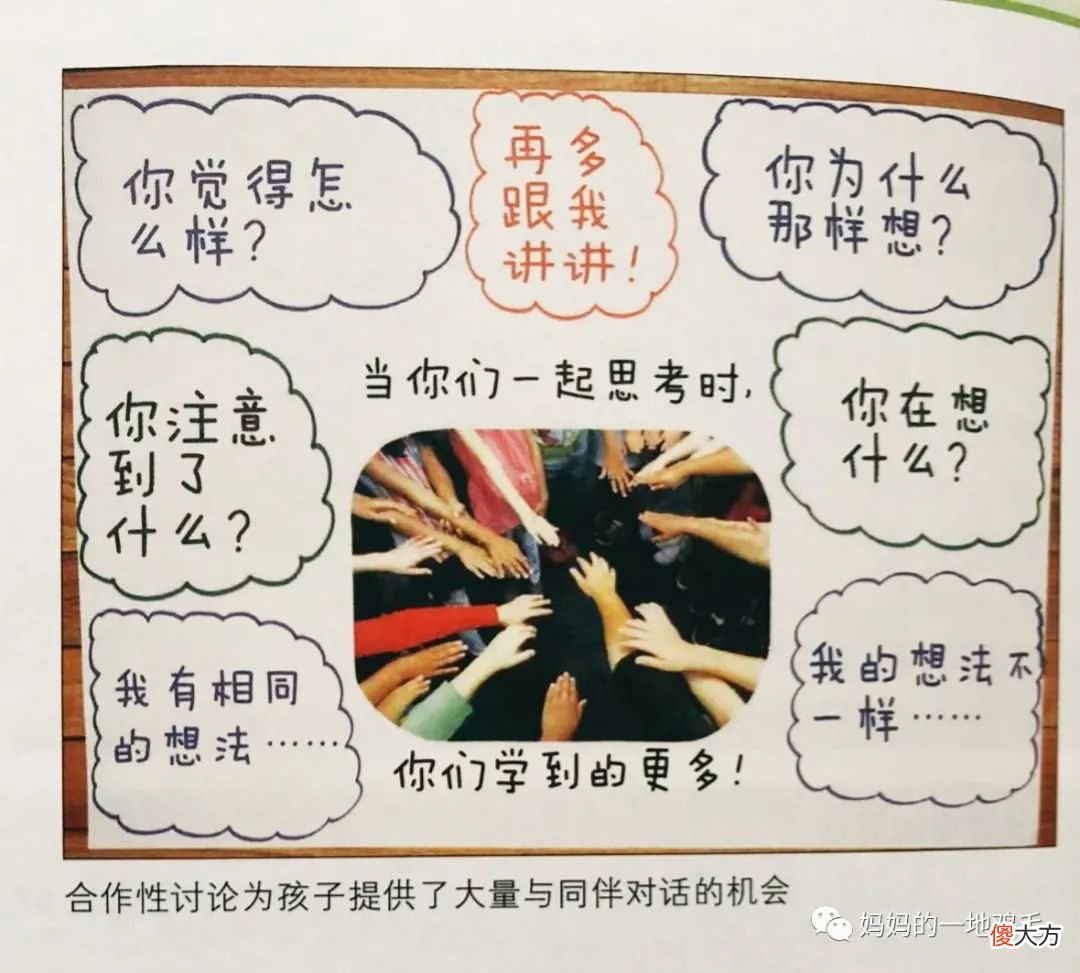 你觉得怎
么样？
再多
跟我
讲讲！
你为什么
那样想？
你注意
到了
什么？
当你们一起思考时，
你在想
什么？
我有相同
的想法……
我的想法不
一样……
你们学到的更多！
合作性讨论为孩子提供了大量与同伴对话的机会
妈妈的一地鸡毛
傻大方